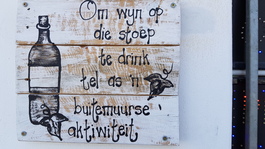 Om wyn op
die stoep
te drink
tel as 'n
buitemuurse
aktiwiteit